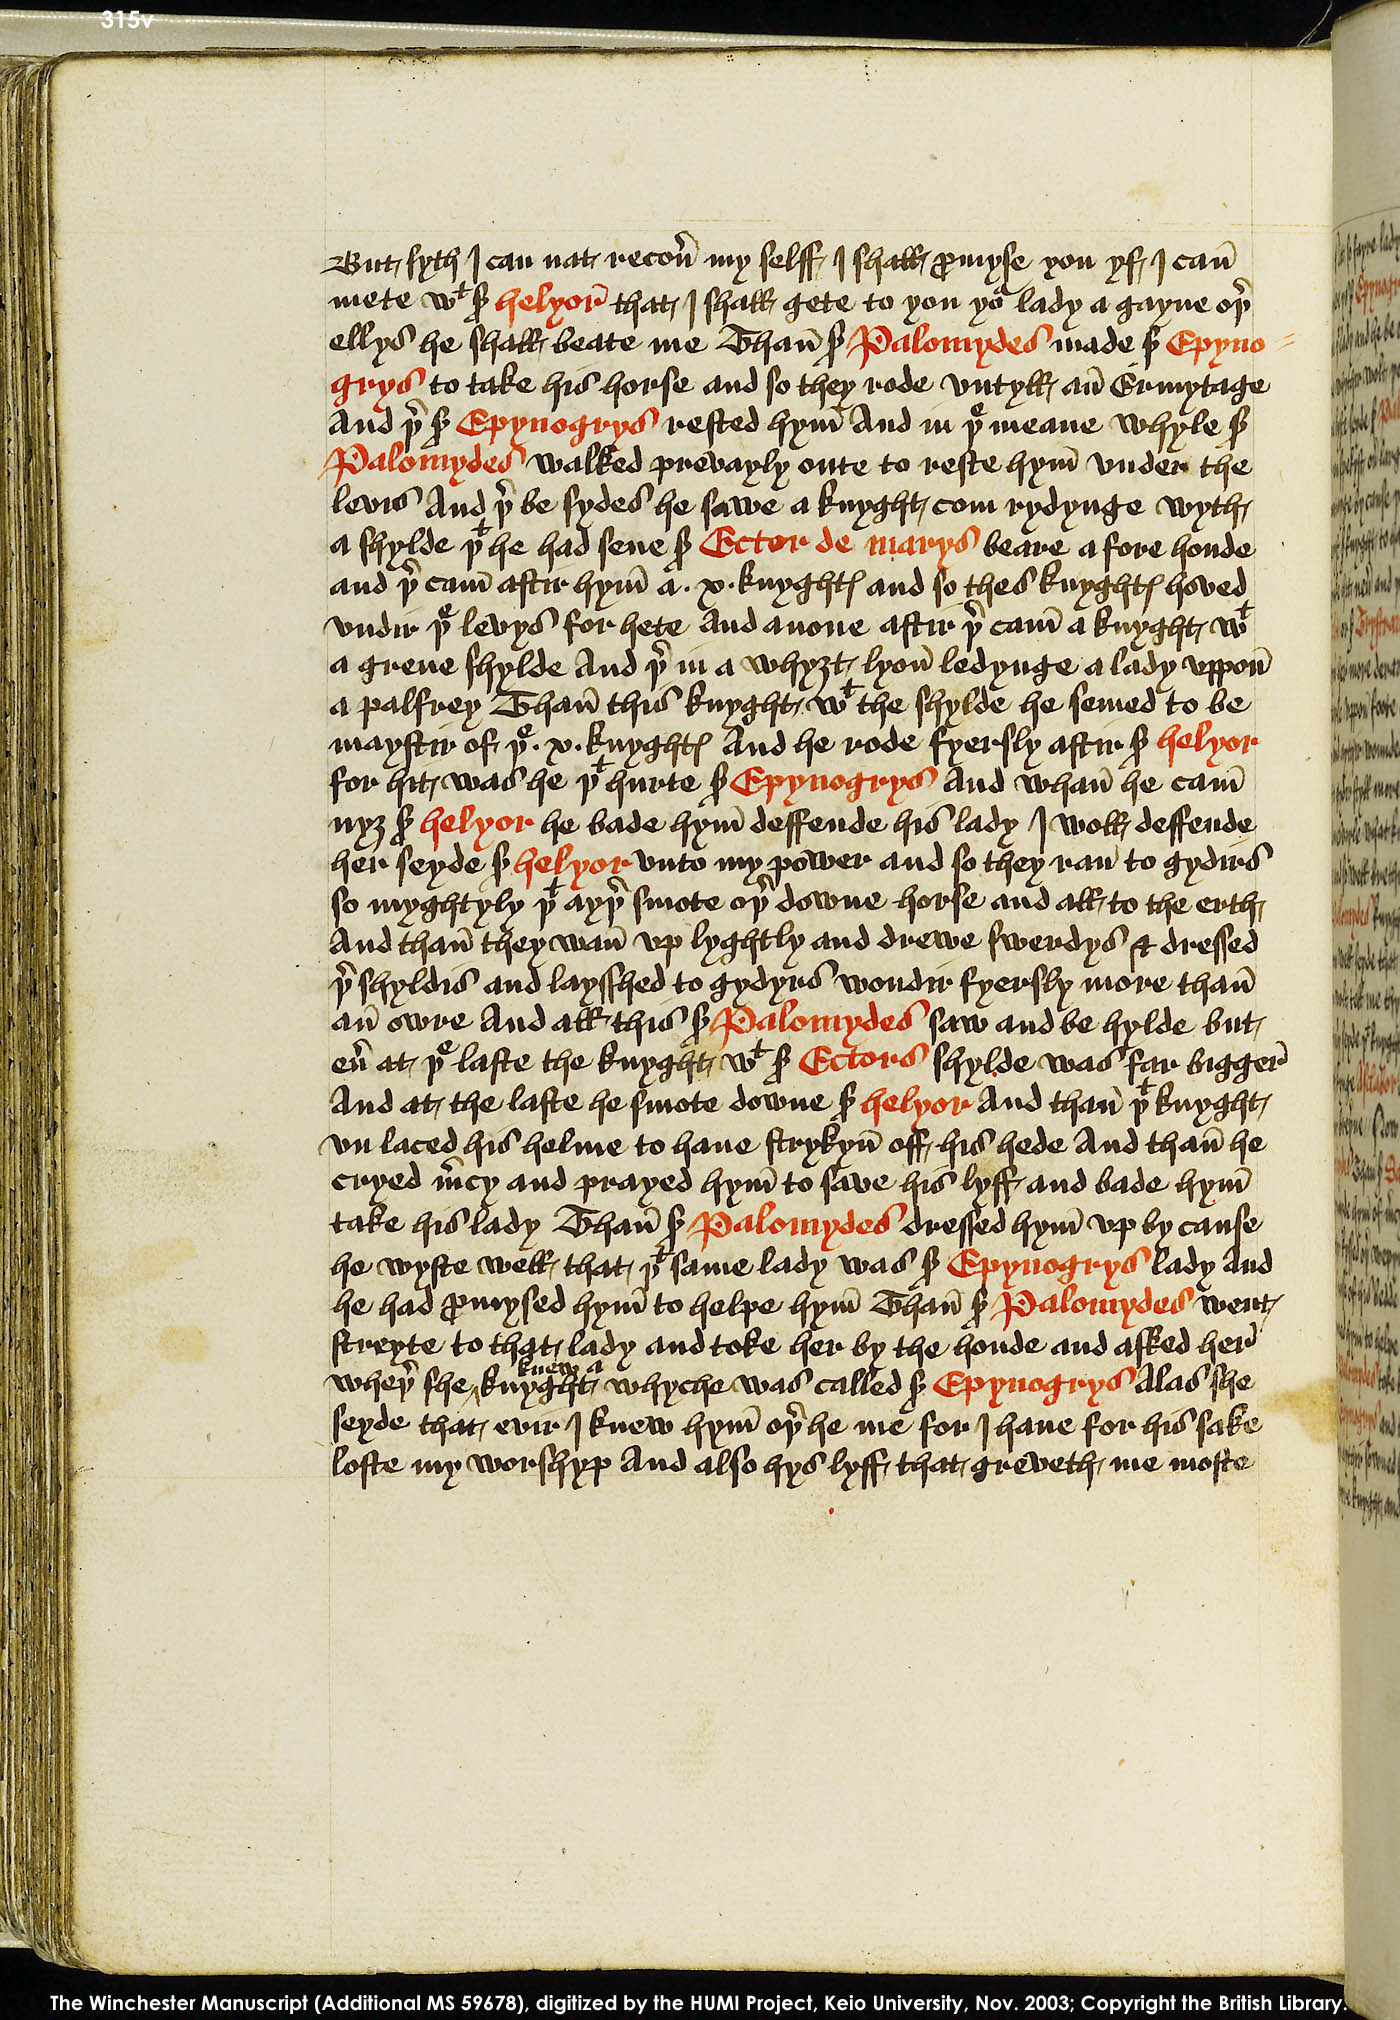 315v
But syth I can nat recoū my selff I shall ꝓmyse you yf I can̄
mete wᵗ sʳ helyor̄ that I shall gete to you yoʳ lady a gayne oþʳ
ellys he shall beate me Than̄ sʳ Palomydes made sʳ Epyno⸗
grys to take his horse and so they rode vntyll an̄ Ermytage
And þʳ sʳ Epynogrys rested hym̄ And in þᵉ meane whyle sʳ
Palomydes walked prevayly oute to reste hym̄ vnder the
levis And þʳ be sydes he sawe a knyght com rydynge wyth
a shylde þᵗ he had sene sʳ Ector de marys beare a fore honde
and þʳ cam̄ aftir hym̄ a . x . knyghtꝭ and so thes knyghtꝭ hoved
vndir þᵉ levys for hete And anone aftir þʳ cam̄ a knyght wᵗ
a grene shylde And þʳ in a whyȝt lyon̄ ledynge a lady vppon̄
a palfrey Than̄ this knyght wᵗ the shylde he semed to be
maystir of þᵉ . x . knyghtꝭ And he rode fyersly aftir sʳ helyor
for hit was he þᵗ hurte sʳ Epynogrys And whan̄ he cam̄
nyȝ sʳ helyor he bade hym̄ deffende his lady I woll deffende
her seyde sʳ helyor vnto my power and so they ran̄ to gydirs
so myghtyly þᵗ ayþʳ smote oþʳ downe horse and all to the erth
And than̄ they wan̄ vp lyghtly and drewe swerdys & dressed
þʳ shyldis and laysshed to gydyrs wondir fyersly more than̄
an̄ owre And all this sʳ Palomydes saw and be hylde but
eū at þᵉ laste the knyght wᵗ sʳ Ectors shylde was far bigger̄
And at the laste he smote downe sʳ helyor And than̄ þᵗ knyght
vn laced his helme to haue strykyn̄ off his hede And than̄ he
cryed m̄cy and prayed hym̄ to save his lyff and bade hym̄
take his lady Than̄ sʳ Palomydes dressed hym̄ vp by cause
he wyste well that þᵗ same lady was sʳ Epynogrys lady And
he had ꝓmysed hym̄ to helpe hym̄ Than̄ sʳ Palomydes went
streyte to that lady and toke her by the honde and asked her̄
wheþʳ she knew a knyght whyche was called sʳ Epynogrys Alas she
seyde that evir I knew hym̄ oþʳ he me for I haue for his sake
loste my worshyp And also hys lyff that greveth me moste
The Winchester Manuscript (Additional MS 59678), digitized by the HUMI Project, Keio University, Nov. 2003; Copyright the British Library.